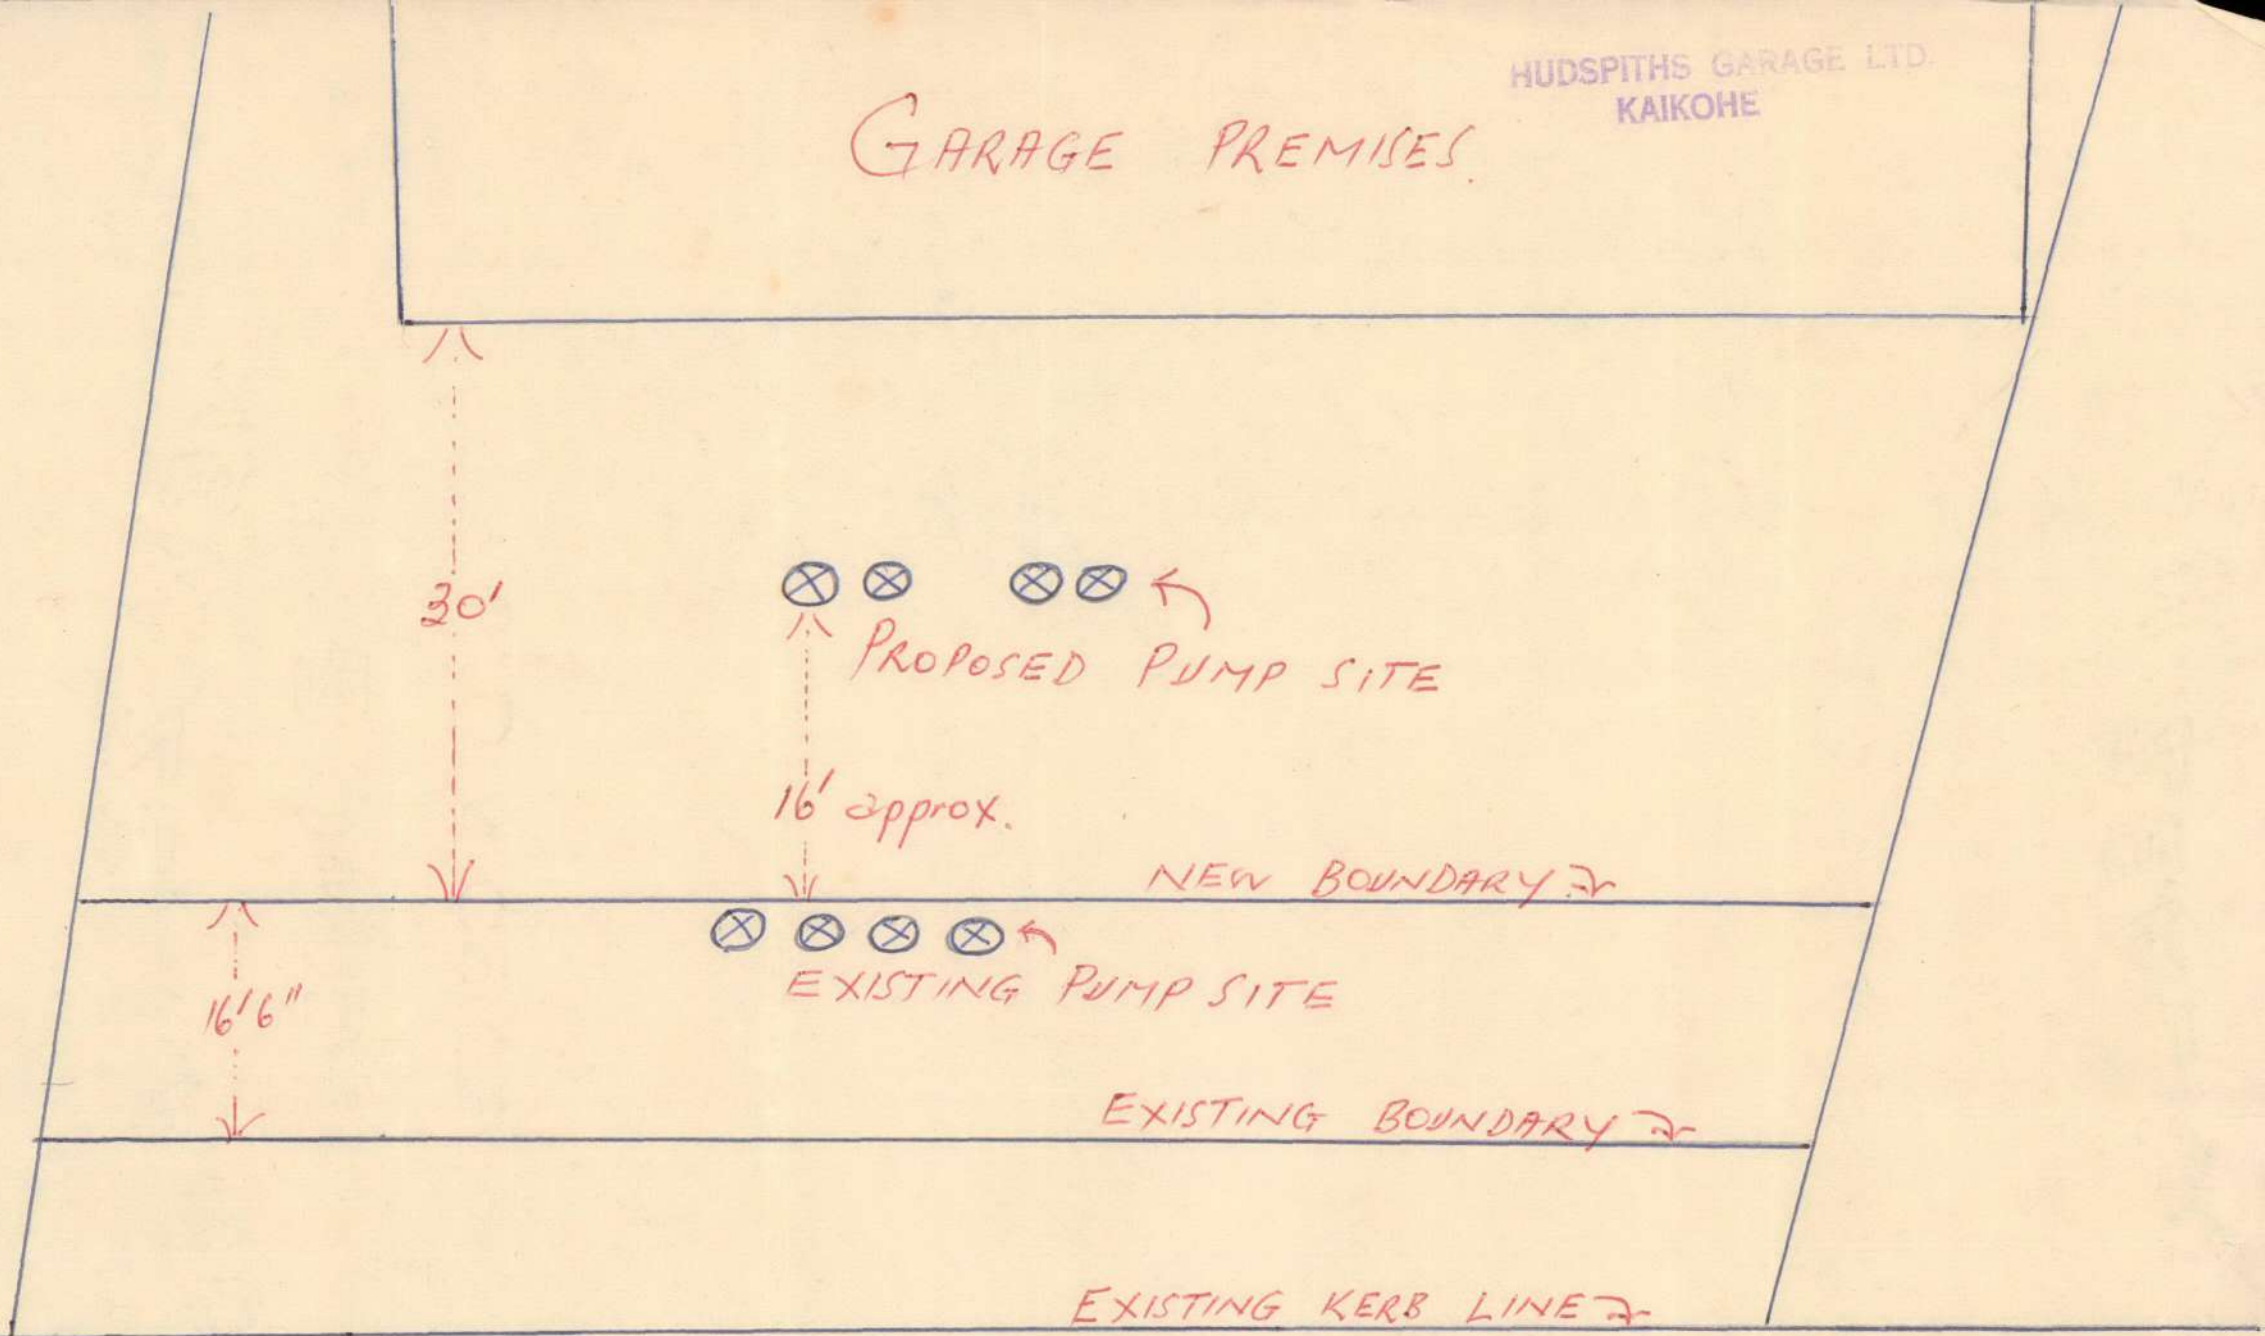 HUDSPITHS GARAGE LTD.
KAIKOHE
GARAGE PREMISES.
30'
PROPOSED PUMP SITE
16' approx.
NEW BOUNDARY
EXISTING PUMP SITE
16'6"
EXISTING BOUNDARY
EXISTING KERB LINE